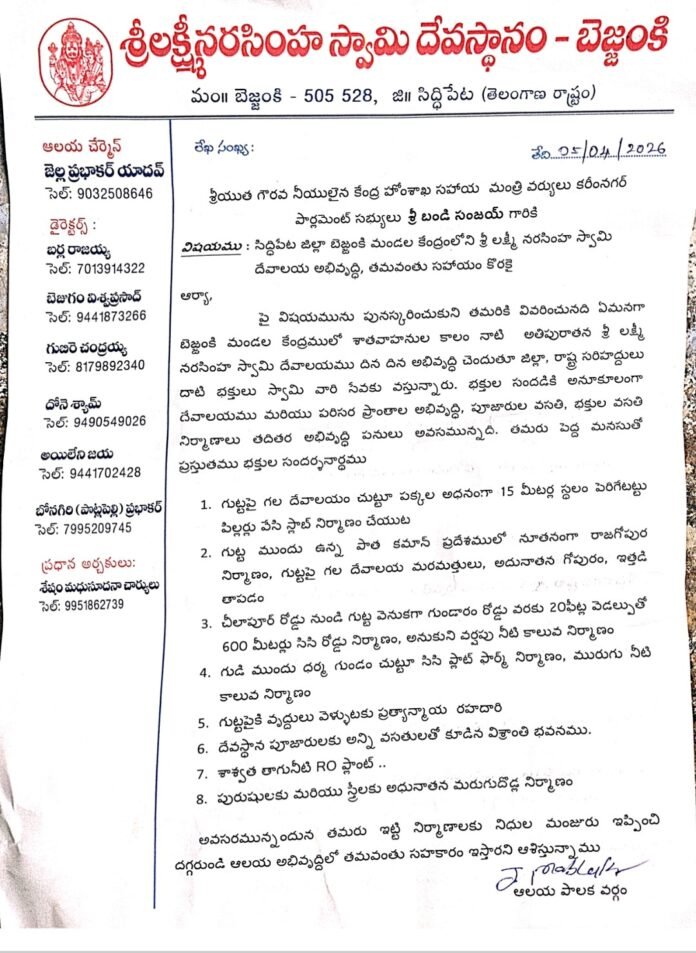 శ్రీలక్ష్మీనరసింహ స్వామి దేవస్థానం - బెజ్జంకి
మం॥ బెజ్జంకి - 505 528, జి॥ సిద్ధిపేట (తెలంగాణ రాష్ట్రం)
ఆలయ చైర్మెన్
జెల్ల ప్రభాకర్ యాదవ్
సెల్: 9032508646
డైరెక్టర్స్ :
బర్ల రాజయ్య
సెల్: 7013914322
బెజుగం విశ్వప్రసాద్
సెల్: 9441873266
గుబిరె చంద్రయ్య
సెల్: 8179892340
దోనె శ్యామ్
సెల్: 9490549026
అయిలేని జయ
సెల్: 9441702428
బోనగిరి (పొట్లపెల్లి) ప్రభాకర్
సెల్: 7995209745
ప్రధాన అర్చకులు:
శేషం మధుసూదనా చార్యులు
సెల్: 9951862739
లేఖ సంఖ్య:
తేది 05/04/2026
శ్రీయుత గౌరవ నీయులైన కేంద్ర హోంశాఖ సహాయ మంత్రి వర్యులు కరీంనగర్
పార్లమెంట్ సభ్యులు శ్రీ బండి సంజయ్ గారికి
విషయము : సిద్దిపేట జిల్లా బెజ్జంకి మండల కేంద్రంలోని శ్రీ లక్ష్మీ నరసింహ స్వామి
దేవాలయ అభివృద్ధి, తమవంతు సహాయం కొరకై
ఆర్యా,
పై విషయమును పునస్కరించుకుని తమరికి వివరించునది ఏమనగా
బెజ్జంకి మండల కేంద్రములో శాతవాహనుల కాలం నాటి అతిపురాతన శ్రీ లక్ష్మీ
నరసింహ స్వామి దేవాలయము దిన దిన అభివృద్ధి చెందుతూ జిల్లా, రాష్ట్ర సరిహద్దులు
దాటి భక్తులు స్వామి వారి సేవకు వస్తున్నారు. భక్తుల సందడికి అనుకూలంగా
దేవాలయము మరియు పరిసర ప్రాంతాల అభివృద్ధి, పూజారుల వసతి, భక్తుల వసతి
నిర్మాణాలు తదితర అభివృద్ధి పనులు అవసమున్నది. తమరు పెద్ద మనసుతో
ప్రస్తుతము భక్తుల సందర్శనార్థము
1. గుట్టపై గల దేవాలయం చుట్టూ పక్కల అధనంగా 15 మీటర్ల స్థలం పెరిగేటట్టు
పిల్లర్లు వేసి స్లాబ్ నిర్మాణం చేయుట
2. గుట్ట ముందు ఉన్న పాత కమాన్ ప్రదేశములో నూతనంగా రాజగోపుర
నిర్మాణం, గుట్టపై గల దేవాలయ మరమత్తులు, అదునాతన గోపురం, ఇత్తడి
తాపడం
3. చీలాపూర్ రోడ్డు నుండి గుట్ట వెనుకగా గుండారం రోడ్డు వరకు 20ఫీట్ల వెడల్పుతో
600 మీటర్లు సిసి రోడ్డు నిర్మాణం, అనుకుని వర్షపు నీటి కాలువ నిర్మాణం
4. గుడి ముందు ధర్మ గుండం చుట్టూ సిసి ప్లాట్ ఫార్మ్ నిర్మాణం, మురుగు నీటి
కాలువ నిర్మాణం
5. గుట్టపైకి వృద్దులు వెళ్ళుటకు ప్రత్యాన్మాయ రహదారి
6. దేవస్థాన పూజారులకు అన్ని వసతులతో కూడిన విశ్రాంతి భవనము.
7. శాశ్వత తాగునీటి RO ప్లాంట్ ..
8. పురుషులకు మరియు స్త్రీలకు అధునాతన మరుగుదొడ్ల నిర్మాణం
అవసరమున్నందున తమరు ఇట్టి నిర్మాణాలకు నిధుల మంజూరు ఇప్పించి
దగ్గరుండి ఆలయ అభివృద్దిలో తమవంతు సహకారం ఇస్తారని ఆశిస్తున్నాము
ఆలయ పాలక వర్గం